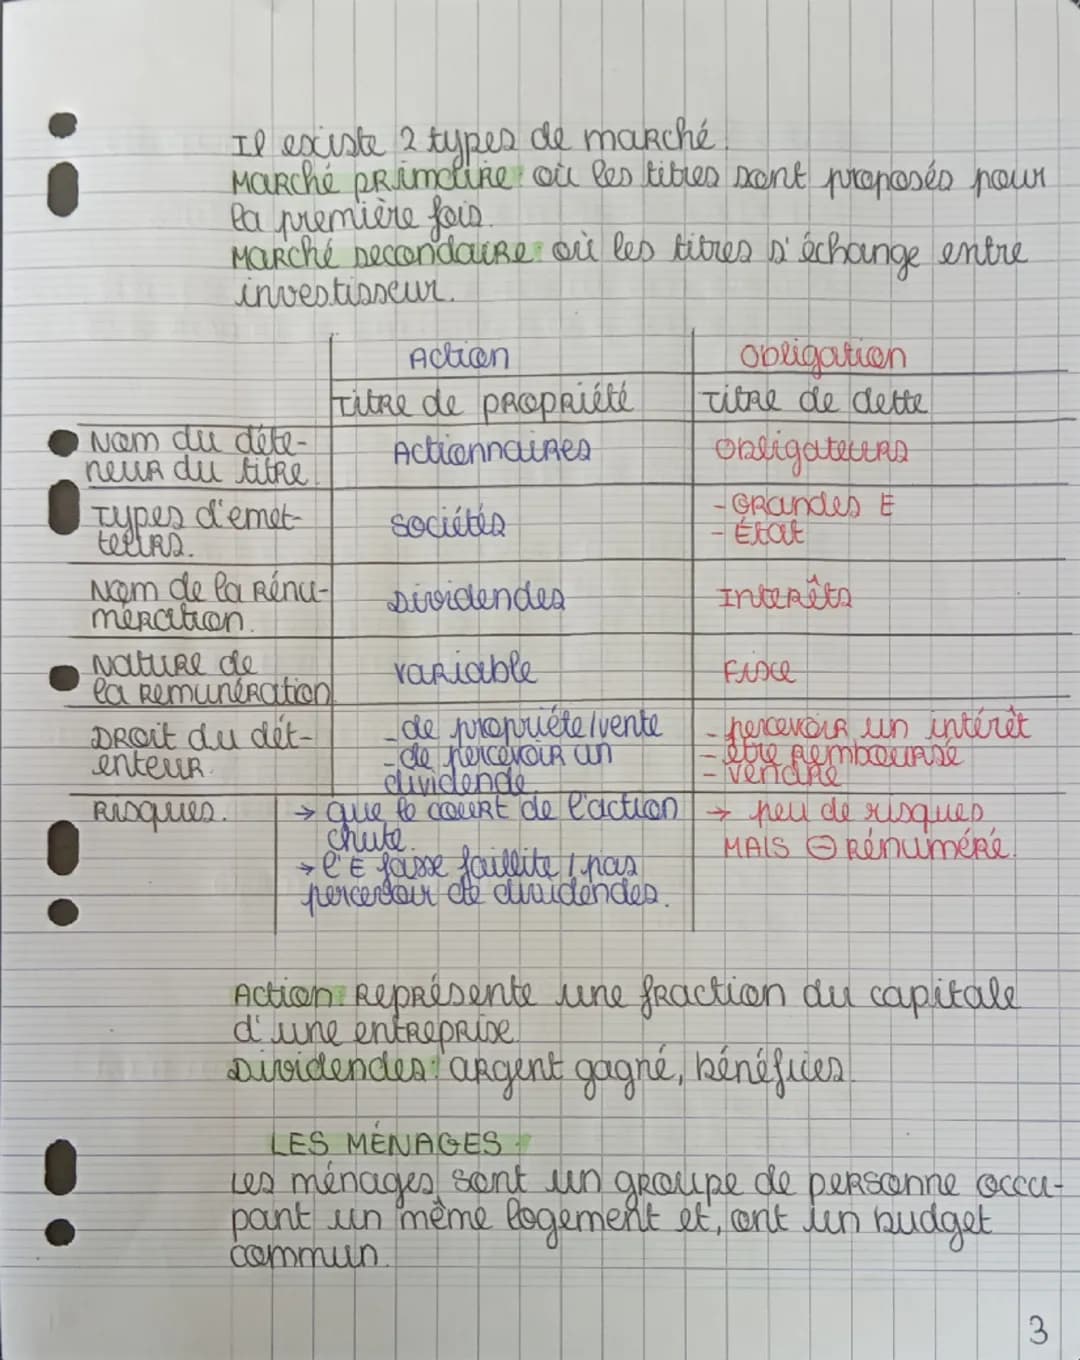 Il existe 2 types de marché.
Marché primaire: où les titres sont proposés pour
la première fois.
Marché secondaire: où les titres s'échange entre
investisseur.
Action Obligation
Titre de propriété Titre de dette
Nom du déte- Actionnaires Obligateurs
neur du titre.
Types d'emet- Sociétés - Grandes E
teurs. - État
Nom de la rénu- Dividendes Interêts
mération.
Nature de variable Fixe
la remunération
Droit du dét- - de propriéte/vente - percevoir un intérêt
enteur. - de percevoir un - être remboursé
dividende - vendre
Risques. → que le court de l'action → peu de risques
chute. MAIS ⊖ rénuméré.
→ l'E fasse faillite / pas
percevoir de dividendes.
Action: Représente une fraction du capitale
d'une entreprise.
Dividendes: argent gagné, bénéfices.
LES MÉNAGES.
Les ménages sont un groupe de personne occu-
pant un même logement et, ont un budget
commun.
3